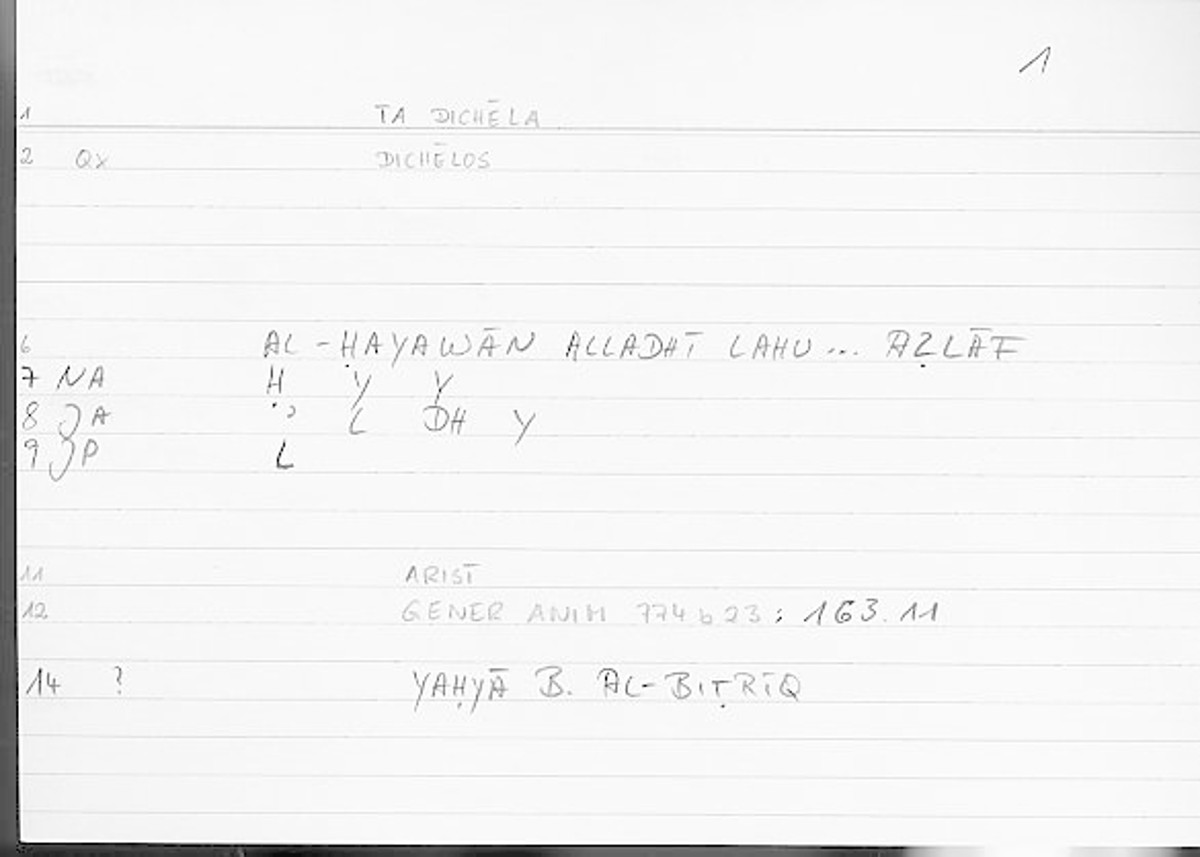 1
1 TA DICHĒLA
2 Qx DICHĒLOS
6 AL-ḤAYAWĀN ALLADHĪ LAHU... AẒLĀF
7 NA Ḥ Y Y
8 JA ʾ L DH Y
9 JP L
11 ARIST
12 GENER ANIM 774 b 23 : 163.11
14 ? YAḤYĀ B. AL-BIṬRĪQ